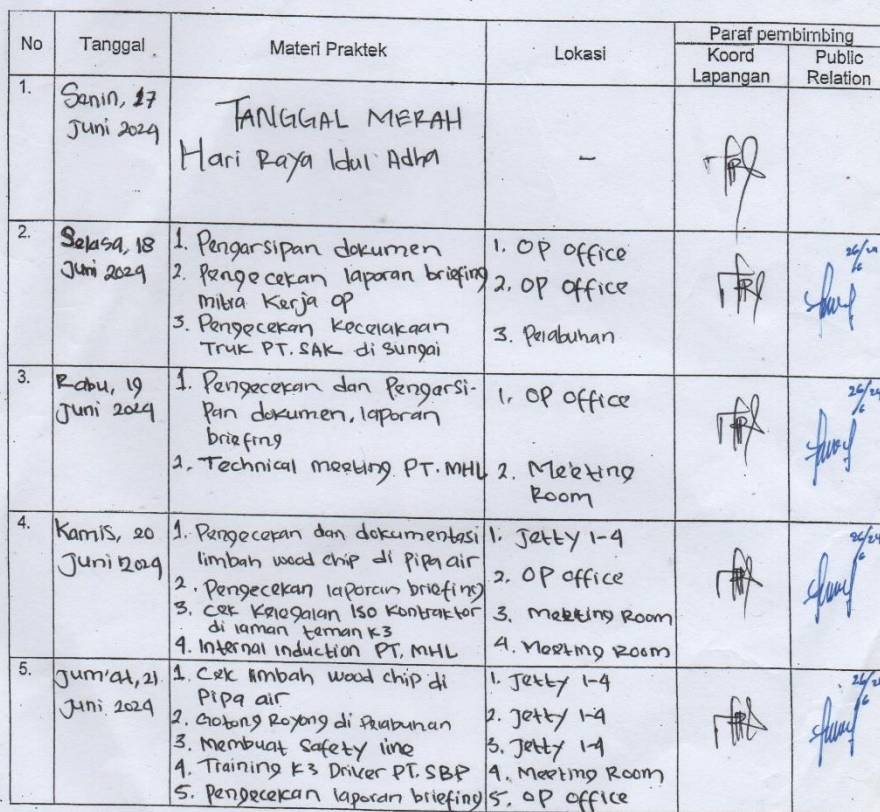 No Tanggal Materi Praktek Lokasi Paraf pembimbing
Koord Lapangan Public Relation
1. Senin, 17 Juni 2024
TANGGAL MERAH
Hari Raya Idul Adha
-
2. Selasa, 18 Juni 2024
1. Pengarsipan dokumen
2. Pengecekan laporan briefing
mitra Kerja OP
3. Pengecekan Kecelakaan
Truk PT. SAK di sungai
1. OP Office
2. OP Office
3. Pelabuhan
26/24
6
3. Rabu, 19 Juni 2024
1. Pengecekan dan Pengarsi-
pan dokumen, laporan
briefing
2. Technical meeting PT. MHL
1. OP Office
2. Meeting
Room
26/24
6
4. Kamis, 20 Juni 2024
1. Pengecekan dan dokumentasi
limbah wood chip di Pipa air
2. Pengecekan laporan briefing
3. Cek Kelegalan Iso Kontraktor
di laman teman K3
4. Internal Induction PT. MHL
1. Jetty 1-4
2. OP Office
3. Meeting Room
4. Meeting Room
26/24
6
5. Jum'at, 21 Juni 2024
1. Cek limbah wood chip di
Pipa air
2. Gotong Royong di Pelabuhan
3. Membuat Safety line
4. Training K3 Driver PT. SBP
5. Pengecekan laporan briefing
1. Jetty 1-4
2. Jetty 1-4
3. Jetty 1-4
4. Meeting Room
5. OP Office
26/24
6